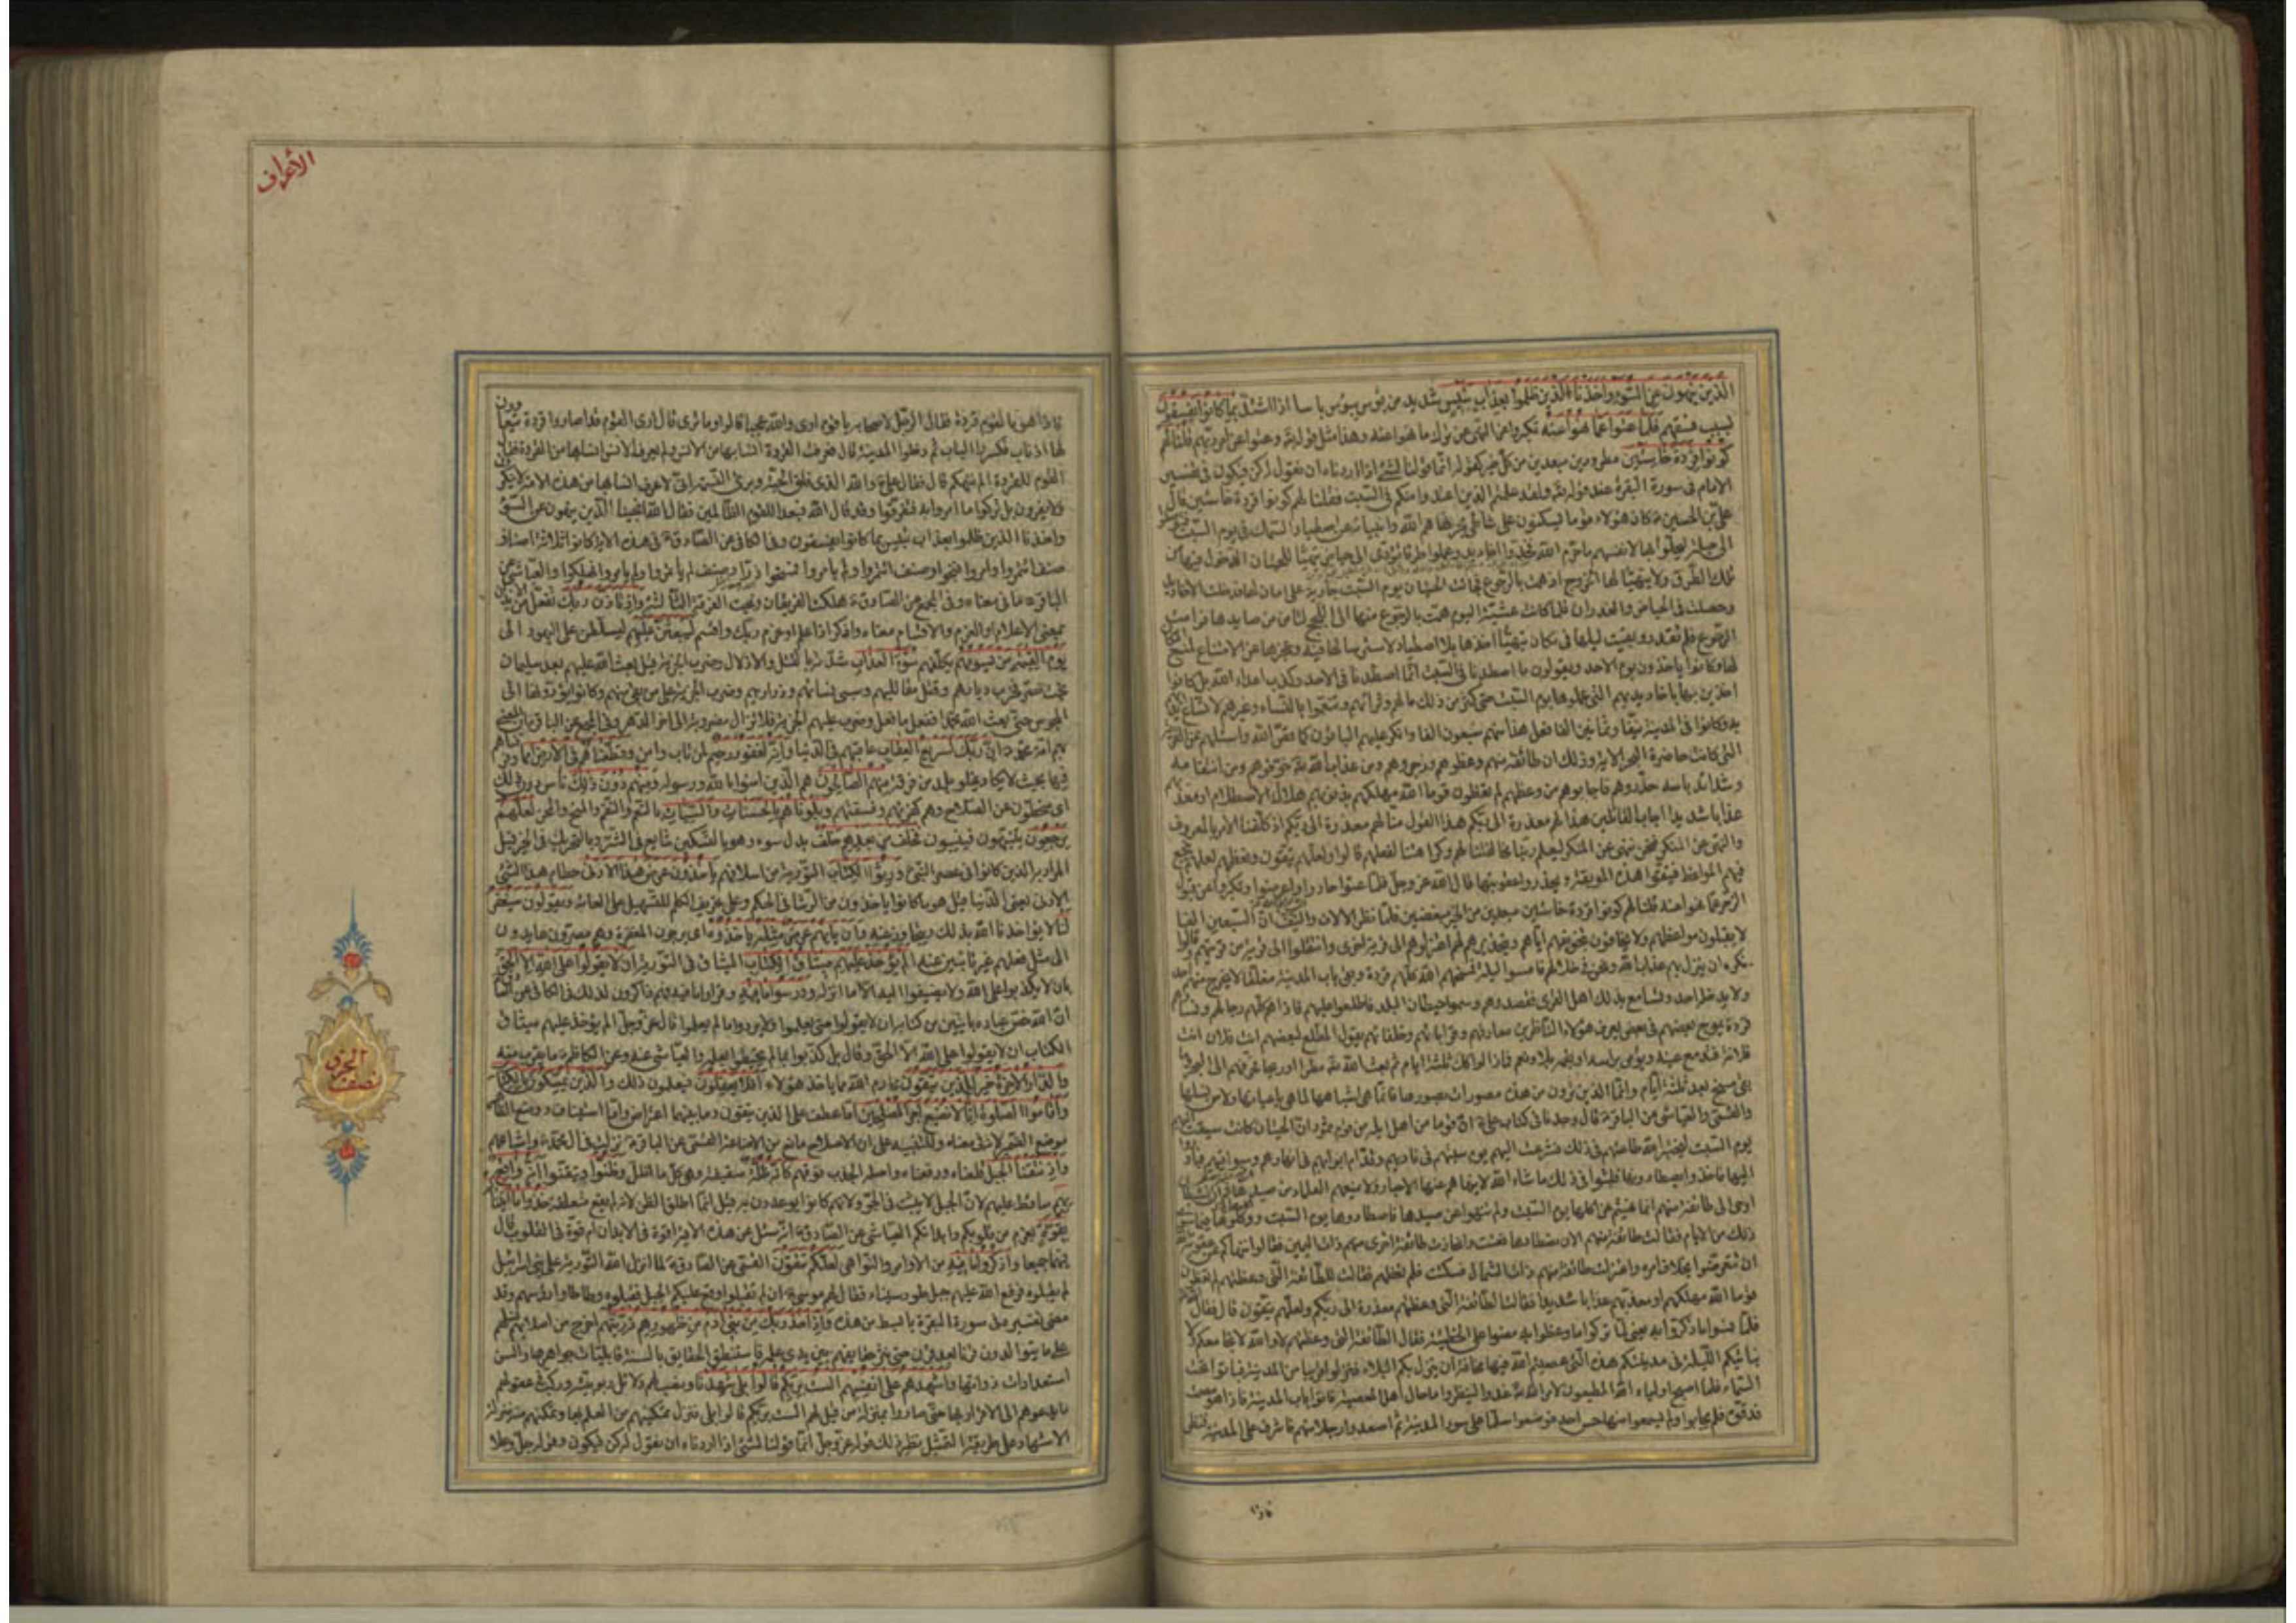 الذين ينهون عن السوء واخذنا الذين ظلموا بعذاب بئيس شديد من بؤس يبوس باسا اذا اشتد بما كانوا يفسقون
بسبب فسقهم فلما عتوا عما نهوا عنه تكبروا عن النهى عن ترك ما نهوا عنه وهذا مثل قوله وعتوا عن امر ربهم قلنا لهم
كونوا قردة خاسئين مطرودين مبعدين من كل خير كقوله انما قولنا لشئ اذا اردناه ان نقول له كن فيكون فى تفسير
الامام فى سورة البقرة عند قوله ولقد علمتم الذين اعتدوا منكم فى السبت فقلنا لهم كونوا قردة خاسئين قال
على بن الحسين كان هؤلاء قوما يسكنون على شاطئ بحر نهاهم الله وانبياؤه عن اصطياد السمك فى يوم السبت
الى حيلة ليحلوا بها لانفسهم ما حرم الله فخدوا اخاديد وعملوا طرقا تؤدى الى حياض يتهيأ للحيتان الدخول فيها من
تلك الطرق ولا يتهيأ لها الخروج اذا همت بالرجوع فجائت الحيتان يوم السبت جارية على امان لها فدخلت الاخاديد
وحصلت فى الحياض والغدران فلما كانت عشية اليوم همت بالرجوع منها الى اللجج لتأمن من صايدها فرامت
الرجوع فلم تقدر وبقيت ليلها فى مكان يتهيأ اخذها بلا اصطياد لاسترسالها فيه وعجزها عن الامتناع لمنع
لها وكانوا ياخذون يوم الاحد ويقولون ما اصطدنا فى السبت انما اصطدنا فى الاحد وكذب اعداء الله بل كانوا
اخذين بها باخاديدهم التى عملوها يوم السبت حتى كثر من ذلك مالهم وثرائهم وتنعموا بالنساء وغيرهن لاتساع
وكانوا فى المدينة نيفا وثمانين الفا فعل هذا منهم سبعون الفا وانكر عليهم الباقون كما قص الله واسئلهم عن القرية
التى كانت حاضرة البحر الاية وذلك ان طائفة منهم وعظوهم وزجروهم ومن عذاب الله خوفوهم ومن انتقامه
وشدائد باسه حذروهم فاجابوهم من وعظهم لم تعظون قوما الله مهلكهم بذنوبهم هلاك الاصطلام او معذبهم
عذابا شديدا اجاب القائلين هذا لهم معذرة الى ربكم هذا القول منا لهم معذرة الى ربكم اذ كلفنا الامر بالمعروف
والنهى عن المنكر فنحن ننهى عن المنكر ليعلم ربنا مخالفتنا لهم وكراهتنا لفعلهم قالوا ولعلهم يتقون ونعظهم لعلهم تنجع
فيهم المواعظ فيتقوا هذه الموبقة ويحذروا عقوبتها قال الله عز وجل فلما عتوا حادوا واعرضوا وتكبروا عن قبول
الزجر عما نهوا عنه قلنا لهم كونوا قردة خاسئين مبعدين من الخير مبغضين فلما نظر الالاف والنيف ان السبعين الفا
لا يقبلون مواعظهم ولا يخافون بتخويفهم اياهم وتحذيرهم لهم اعتزلوهم الى قرية اخرى وانتقلوا الى قرية من قريتهم وقالوا
نكره ان ينزل بهم عذاب الله ونحن فى خلالهم فامسوا ليلة فمسخهم الله كلهم قردة وبقى باب المدينة مغلقا لا يخرج منهم احد
ولا يدخل احد وتسامع بذلك اهل القرى فقصدوهم وسموا حيطان البلد فاطلعوا عليهم فاذا هم كلهم رجالهم ونساؤهم
قردة يموج بعضهم فى بعض يعرف هؤلاء الناظرين معارفهم وقراباتهم وخلطائهم يقول المطلع لبعضهم انت فلان انت
فلانة فتدمع عينه ويومى براسه او بفمه بلا ونعم فما زالوا كذلك ثلثة ايام ثم بعث الله مطرا وريحا فجرفهم الى البحر وما
بقى مسخ بعد ثلثة ايام وانما الذين ترون من هذه مصورات بصورها فانما هى اشباهها لا هى باعيانها ولا من نسلها
والقمى والعياشى عن الباقر قال وجدنا فى كتاب على ان قوما من اهل ايلة من قوم ثمود ان الحيتان كانت سبقت اليهم
يوم السبت ليختبر الله طاعتهم فى ذلك فشرعت اليهم يوم سبتهم فى ناديهم وقدام ابوابهم فى انهارهم وسواقيهم فبادروا
اليها فاخذوا يصطادونها فلبثوا فى ذلك ما شاء الله لا ينهاهم عنها الاحبار ولا يمنعهم العلماء من صيدها ثم ان الشيطان
اوحى الى طائفة منهم انما نهيتم عن اكلها يوم السبت ولم تنهوا عن صيدها فاصطادوها يوم السبت وكلوها فيما سوى
ذلك من الايام فقالت طائفة منهم الان نصطادها فعتت وانحازت طائفة اخرى منهم ذات اليمين فقالوا ننهاكم عن عقوبة
ان تتعرضوا بخلاف امره واعتزلت طائفة منهم ذات الشمال فسكتت فلم تعظهم فقالت للطائفة التى وعظتهم لم تعظون
قوما الله مهلكهم او معذبهم عذابا شديدا فقالت الطائفة التى وعظتهم معذرة الى ربكم ولعلهم يتقون قال فقال
فلما نسوا ما ذكروا به يعنى لما تركوا ما وعظوا به مضوا على الخطيئة فقال الطائفة التى وعظتهم لا والله لا نجامعكم ولا
نبايتكم الليلة فى مدينتكم هذه التى عصيتم الله فيها مخافة ان ينزل بكم البلاء فنزلوا قريبا من المدينة فباتوا تحت
السماء فلما اصبح اولياء الله المطيعون لامر الله غدوا لينظروا ما حال اهل المعصية فاتوا باب المدينة فاذا هو مصمت
فدقوه فلم يجابوا ولم يسمعوا منها حس احد فوضعوا سلما على سور المدينة ثم اصعدوا رجلا منهم فاشرف على المدينة فنظر
فاذا
الأعراف
فاذا هو بالقوم قردة فقال الرجل لاصحابه يا قوم ارى والله عجبا قالوا وما ترى قال ارى القوم قد صاروا قردة يتعاوون
لها اذناب فكسروا الباب ثم دخلوا المدينة قال فعرفت القردة انسابها من الانس ولم يعرف الانس انسابها من القردة فقال
القوم للقردة الم ننهكم قال فقال على والله الذى فلق الحبة وبرئ النسمة انى لاعرف انسابها من هذه الامة لا ينكرون
ولا يغيرون بل تركوا ما امروا به فتفرقوا وقد قال الله فبعدا للقوم الظالمين فقال الله انجينا الذين ينهون عن السوء
واخذنا الذين ظلموا بعذاب بئيس بما كانوا يفسقون وفى الكافى عن الصادق فى هذه الاية كانوا ثلاثة اصناف
صنف ائتمروا وامروا فنجوا وصنف ائتمروا ولم يامروا فمسخوا ذرا وصنف لم يأتمروا ولم يامروا فهلكوا والعياشى عن
الباقر ما فى معناه وفى المجمع عن الصادق هلكت الفريقان ونجت الفرقة الثالثة واذ تاذن ربك تفعل من الايذان
بمعنى الاعلام او العزم والاقسام معناه واذكر اذ اعلم او عزم ربك واقسم ليبعثن عليهم ليسلطن على اليهود الى
يوم القيمة من يسومهم يكلفهم سوء العذاب شدته بالقتل والاذلال وضرب الجزية قيل بعث الله عليهم بعد سليمان
بخت نصر فخرب ديارهم وقتل مقاتليهم وسبى نسائهم وذراريهم وضرب الجزية على من بقى منهم وكانوا يؤدونها الى
المجوس حتى بعث الله محمدا ففعل ما فعل وضرب عليهم الجزية فلا تزال مضروبة الى اخر الدهر وفى المجمع عن الباقر ان المعنى
بهم امة محمد ان ربك لسريع العقاب عاقبهم فى الدنيا وانه لغفور رحيم لمن تاب وامن وقطعناهم فى الارض امما وفرقناهم
فيها بحيث لا يكاد يخلو بلد من فرقة منهم الصالحون هم الذين امنوا بالله ورسوله ومنهم دون ذلك ناس دون ذلك
اى منحطون عن الصلاح وهم كفرتهم وفسقتهم وبلوناهم بالحسنات والسيئات بالنعم والنقم والمنح والمحن لعلهم
يرجعون ينتبهون فينيبون فخلف من بعدهم خلف بدل سوء وهو بالتسكين شايع فى الشر وبالتحريك فى الخير قيل
المراد به الذين كانوا فى عصر النبى ورثوا الكتاب التورية من اسلافهم ياخذون عرض هذا الادنى حطام هذا الشئ
الادنى يعنى الدنيا قيل هو ما كانوا ياخذون من الرشا فى الحكم وعلى تحريف الكلم للتسهيل على العامة ويقولون سيغفر
لنا لا يؤاخذنا الله بذلك ويتجاوز عنه وان ياتهم عرض مثله ياخذوه اى يرجون المغفرة وهم مصرون عايدون
الى مثل فعلهم غير تائبين عنه الم يؤخذ عليهم ميثاق الكتاب الميثاق فى التورية ان لا يقولوا على الله الا الحق
بان لا يكذبوا على الله ولا يضيفوا اليه الا ما انزله ودرسوا ما فيه وقراوا ما فيه فهم ذاكرون لذلك فى الكافى عن الصادق
ان الله خص عباده بايتين من كتابه ان لا يقولوا حتى يعلموا ولا يردوا ما لم يعلموا قال عز وجل الم يؤخذ عليهم ميثاق
الكتاب ان لا يقولوا على الله الا الحق وقال بل كذبوا بما لم يحيطوا بعلمه والعياشى عنه وعن الكاظم ما يقرب منه
والدار الاخرة خير للذين يتقون محارم الله مما ياخذ هؤلاء افلا يعقلون فيعلمون ذلك والذين يمسكون بالكتاب
واقاموا الصلوة انا لا نضيع اجر المصلحين اما عطف على الذين يتقون وما بينهما اعتراض واما استيناف ووضع الظاهر
موضع المضمر لانه فى معناه وللتنبيه على ان الاصلاح مانع من الاضاعة القمى عن الباقر نزلت فى ال محمد واشياعهم
واذ نتقنا الجبل قلعناه ورفعناه واصله الجذب فوقهم كانه ظلة سقيفة وهى كل ما اظلك وظنوا وتيقنوا انه واقع
بهم ساقط عليهم لان الجبل لا يثبت فى الجو ولانهم كانوا يوعدون به قيل انما اطلق الظن لانه لم يقع متعلقه خذوا ما اتيناكم
بقوة بعزم من قلوبكم وابدانكم العياشى عن الصادق انه سئل عن هذه الاية اقوة فى الابدان ام قوة فى القلوب قال
فيهما جميعا واذكروا ما فيه من الاوامر والنواهى لعلكم تتقون القمى عن الصادق لما انزل الله التورية على بنى اسرائيل
لم يقبلوه فرفع الله عليهم جبل طور سيناء فقال لهم موسى ان لم تقبلوا وقع عليكم الجبل فقبلوه وطاطاوا رؤسهم وقد
مضى تفسير فى سورة البقرة بابسط من هذا واذ اخذ ربك من بنى ادم من ظهورهم ذريتهم اخرج من اصلابهم نسلهم
على ما يتوالدون قرنا بعد قرن حتى نثر حقايقهم بين يدى علمه فاستنطق الحقايق بالسنة قابليات جواهرها والسن
استعدادات ذواتها واشهدهم على انفسهم الست بربكم قالوا بلى شهدنا ونصب لهم دلائل ربوبيته وركب فى عقولهم
ما يدعوهم الى الاقرار بها حتى صاروا بمنزلة من قيل لهم الست بربكم قالوا بلى فنزل تمكينهم من العلم بها وتمكنهم منه منزلة
الاشهاد على طريقة التمثيل نظير ذلك قوله عز وجل انما قولنا لشئ اذا اردناه ان نقول له كن فيكون وقوله جل وعلا
نصف الجزء